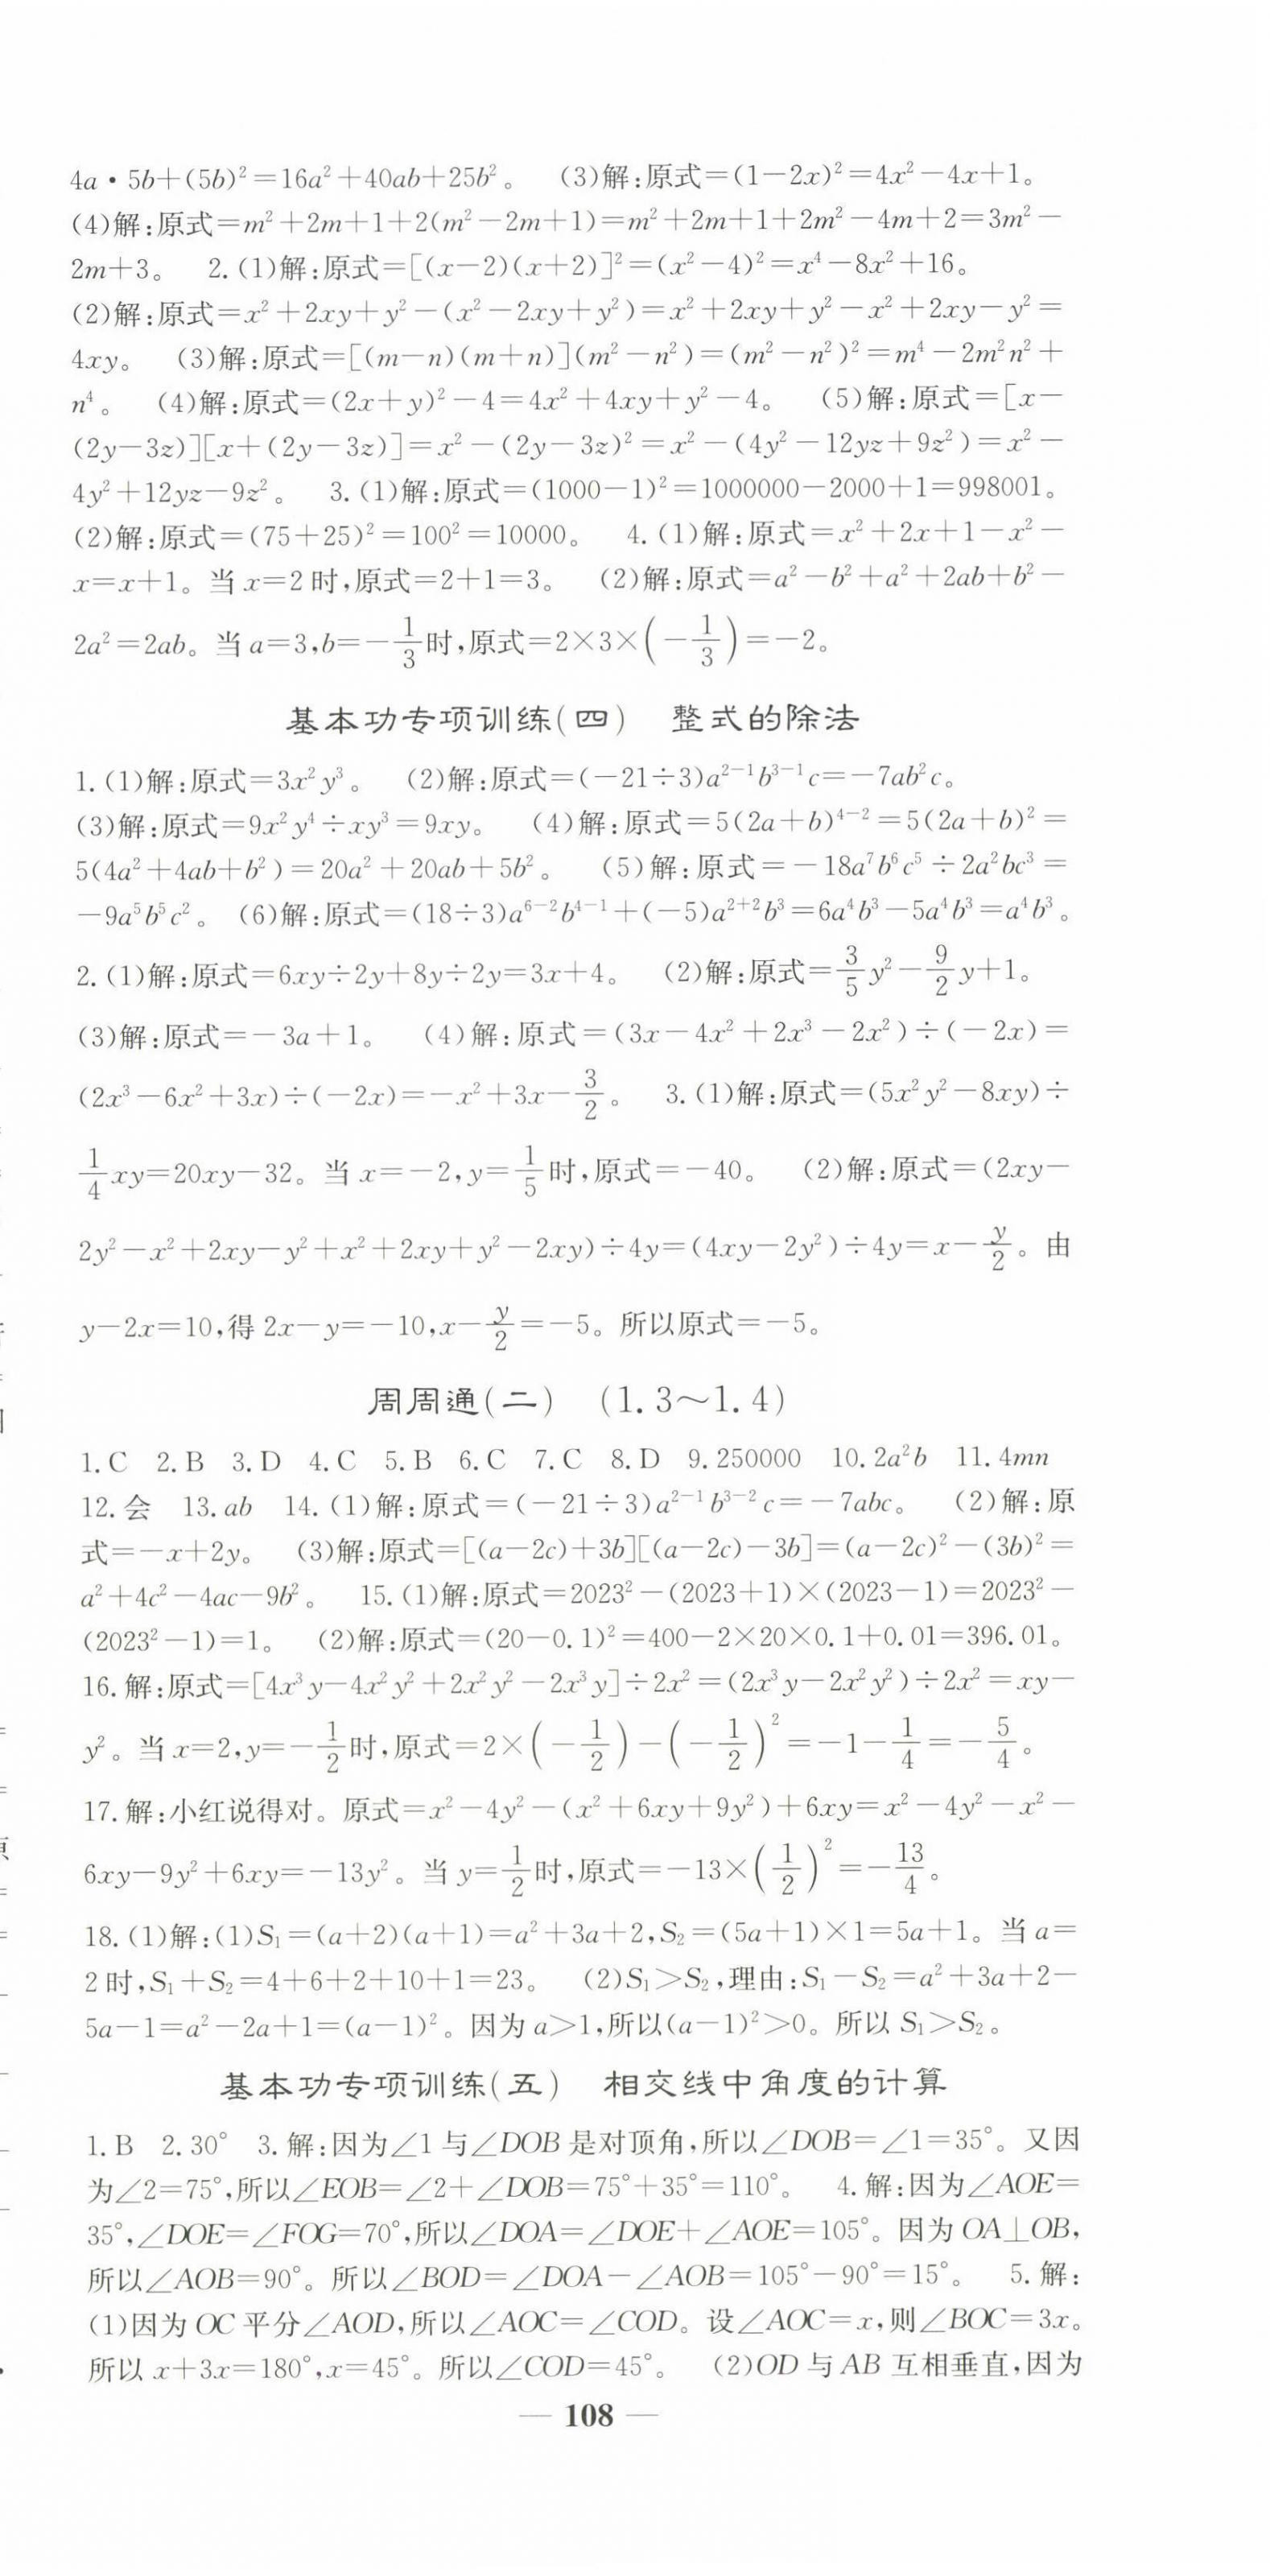 4a·5b+(5b)²=16a²+40ab+25b²。 (3)解:原式=(1-2x)²=4x²-4x+1。
(4)解:原式=m²+2m+1+2(m²-2m+1)=m²+2m+1+2m²-4m+2=3m²-
2m+3。 2.(1)解:原式=[(x-2)(x+2)]²=(x²-4)²=x⁴-8x²+16。
(2)解:原式=x²+2xy+y²-(x²-2xy+y²)=x²+2xy+y²-x²+2xy-y²=
4xy。 (3)解:原式=[(m-n)(m+n)](m²-n²)=(m²-n²)²=m⁴-2m²n²+
n⁴。 (4)解:原式=(2x+y)²-4=4x²+4xy+y²-4。 (5)解:原式=[x-
(2y-3z)][x+(2y-3z)]=x²-(2y-3z)²=x²-(4y²-12yz+9z²)=x²-
4y²+12yz-9z²。 3.(1)解:原式=(1000-1)²=1000000-2000+1=998001。
(2)解:原式=(75+25)²=100²=10000。 4.(1)解:原式=x²+2x+1-x²-
x=x+1。当x=2时,原式=2+1=3。 (2)解:原式=a²-b²+a²+2ab+b²-
2a²=2ab。当a=3,b=-1/3时,原式=2×3×(-1/3)=-2。
基本功专项训练(四) 整式的除法
1.(1)解:原式=3x²y³。 (2)解:原式=(-21÷3)a²⁻¹b³⁻¹c=-7ab²c。
(3)解:原式=9x²y⁴÷xy³=9xy。 (4)解:原式=5(2a+b)⁴⁻²=5(2a+b)²=
5(4a²+4ab+b²)=20a²+20ab+5b²。 (5)解:原式=-18a⁷b⁶c⁵÷2a²bc³=
-9a⁵b⁵c²。 (6)解:原式=(18÷3)a⁶⁻²b⁴⁻¹+(-5)a²⁺²b³=6a⁴b³-5a⁴b³=a⁴b³。
2.(1)解:原式=6xy÷2y+8y÷2y=3x+4。 (2)解:原式=3/5y²-9/2y+1。
(3)解:原式=-3a+1。 (4)解:原式=(3x-4x²+2x³-2x²)÷(-2x)=
(2x³-6x²+3x)÷(-2x)=-x²+3x-3/2。 3.(1)解:原式=(5x²y²-8xy)÷
1/4xy=20xy-32。当x=-2,y=1/5时,原式=-40。 (2)解:原式=(2xy-
2y²-x²+2xy-y²+x²+2xy+y²-2xy)÷4y=(4xy-2y²)÷4y=x-y/2。由
y-2x=10,得2x-y=-10,x-y/2=-5。所以原式=-5。
周周通(二) (1.3~1.4)
1.C 2.B 3.D 4.C 5.B 6.C 7.C 8.D 9.250000 10.2a²b 11.4mn
12.会 13.ab 14.(1)解:原式=(-21÷3)a²⁻¹b³⁻²c=-7abc。 (2)解:原
式=-x+2y。 (3)解:原式=[(a-2c)+3b][(a-2c)-3b]=(a-2c)²-(3b)²=
a²+4c²-4ac-9b²。 15.(1)解:原式=2023²-(2023+1)×(2023-1)=2023²-
(2023²-1)=1。 (2)解:原式=(20-0.1)²=400-2×20×0.1+0.01=396.01。
16.解:原式=[4x³y-4x²y²+2x²y²-2x³y]÷2x²=(2x³y-2x²y²)÷2x²=xy-
y²。当x=2,y=-1/2时,原式=2×(-1/2)-(-1/2)²=-1-1/4=-5/4。
17.解:小红说得对。原式=x²-4y²-(x²+6xy+9y²)+6xy=x²-4y²-x²-
6xy-9y²+6xy=-13y²。当y=1/2时,原式=-13×(1/2)²=-13/4。
18.(1)解:(1)S₁=(a+2)(a+1)=a²+3a+2,S₂=(5a+1)×1=5a+1。当a=
2时,S₁+S₂=4+6+2+10+1=23。 (2)S₁>S₂,理由:S₁-S₂=a²+3a+2-
5a-1=a²-2a+1=(a-1)²。因为a>1,所以(a-1)²>0。所以S₁>S₂。
基本功专项训练(五) 相交线中角度的计算
1.B 2.30° 3.解:因为∠1与∠DOB是对顶角,所以∠DOB=∠1=35°。又因
为∠2=75°,所以∠EOB=∠2+∠DOB=75°+35°=110°。 4.解:因为∠AOE=
35°,∠DOE=∠FOG=70°,所以∠DOA=∠DOE+∠AOE=105°。因为OA⊥OB,
所以∠AOB=90°。所以∠BOD=∠DOA-∠AOB=105°-90°=15°。 5.解:
(1)因为OC平分∠AOD,所以∠AOC=∠COD。设∠AOC=x,则∠BOC=3x。
所以x+3x=180°,x=45°。所以∠COD=45°。 (2)OD与AB互相垂直,因为
— 108 —